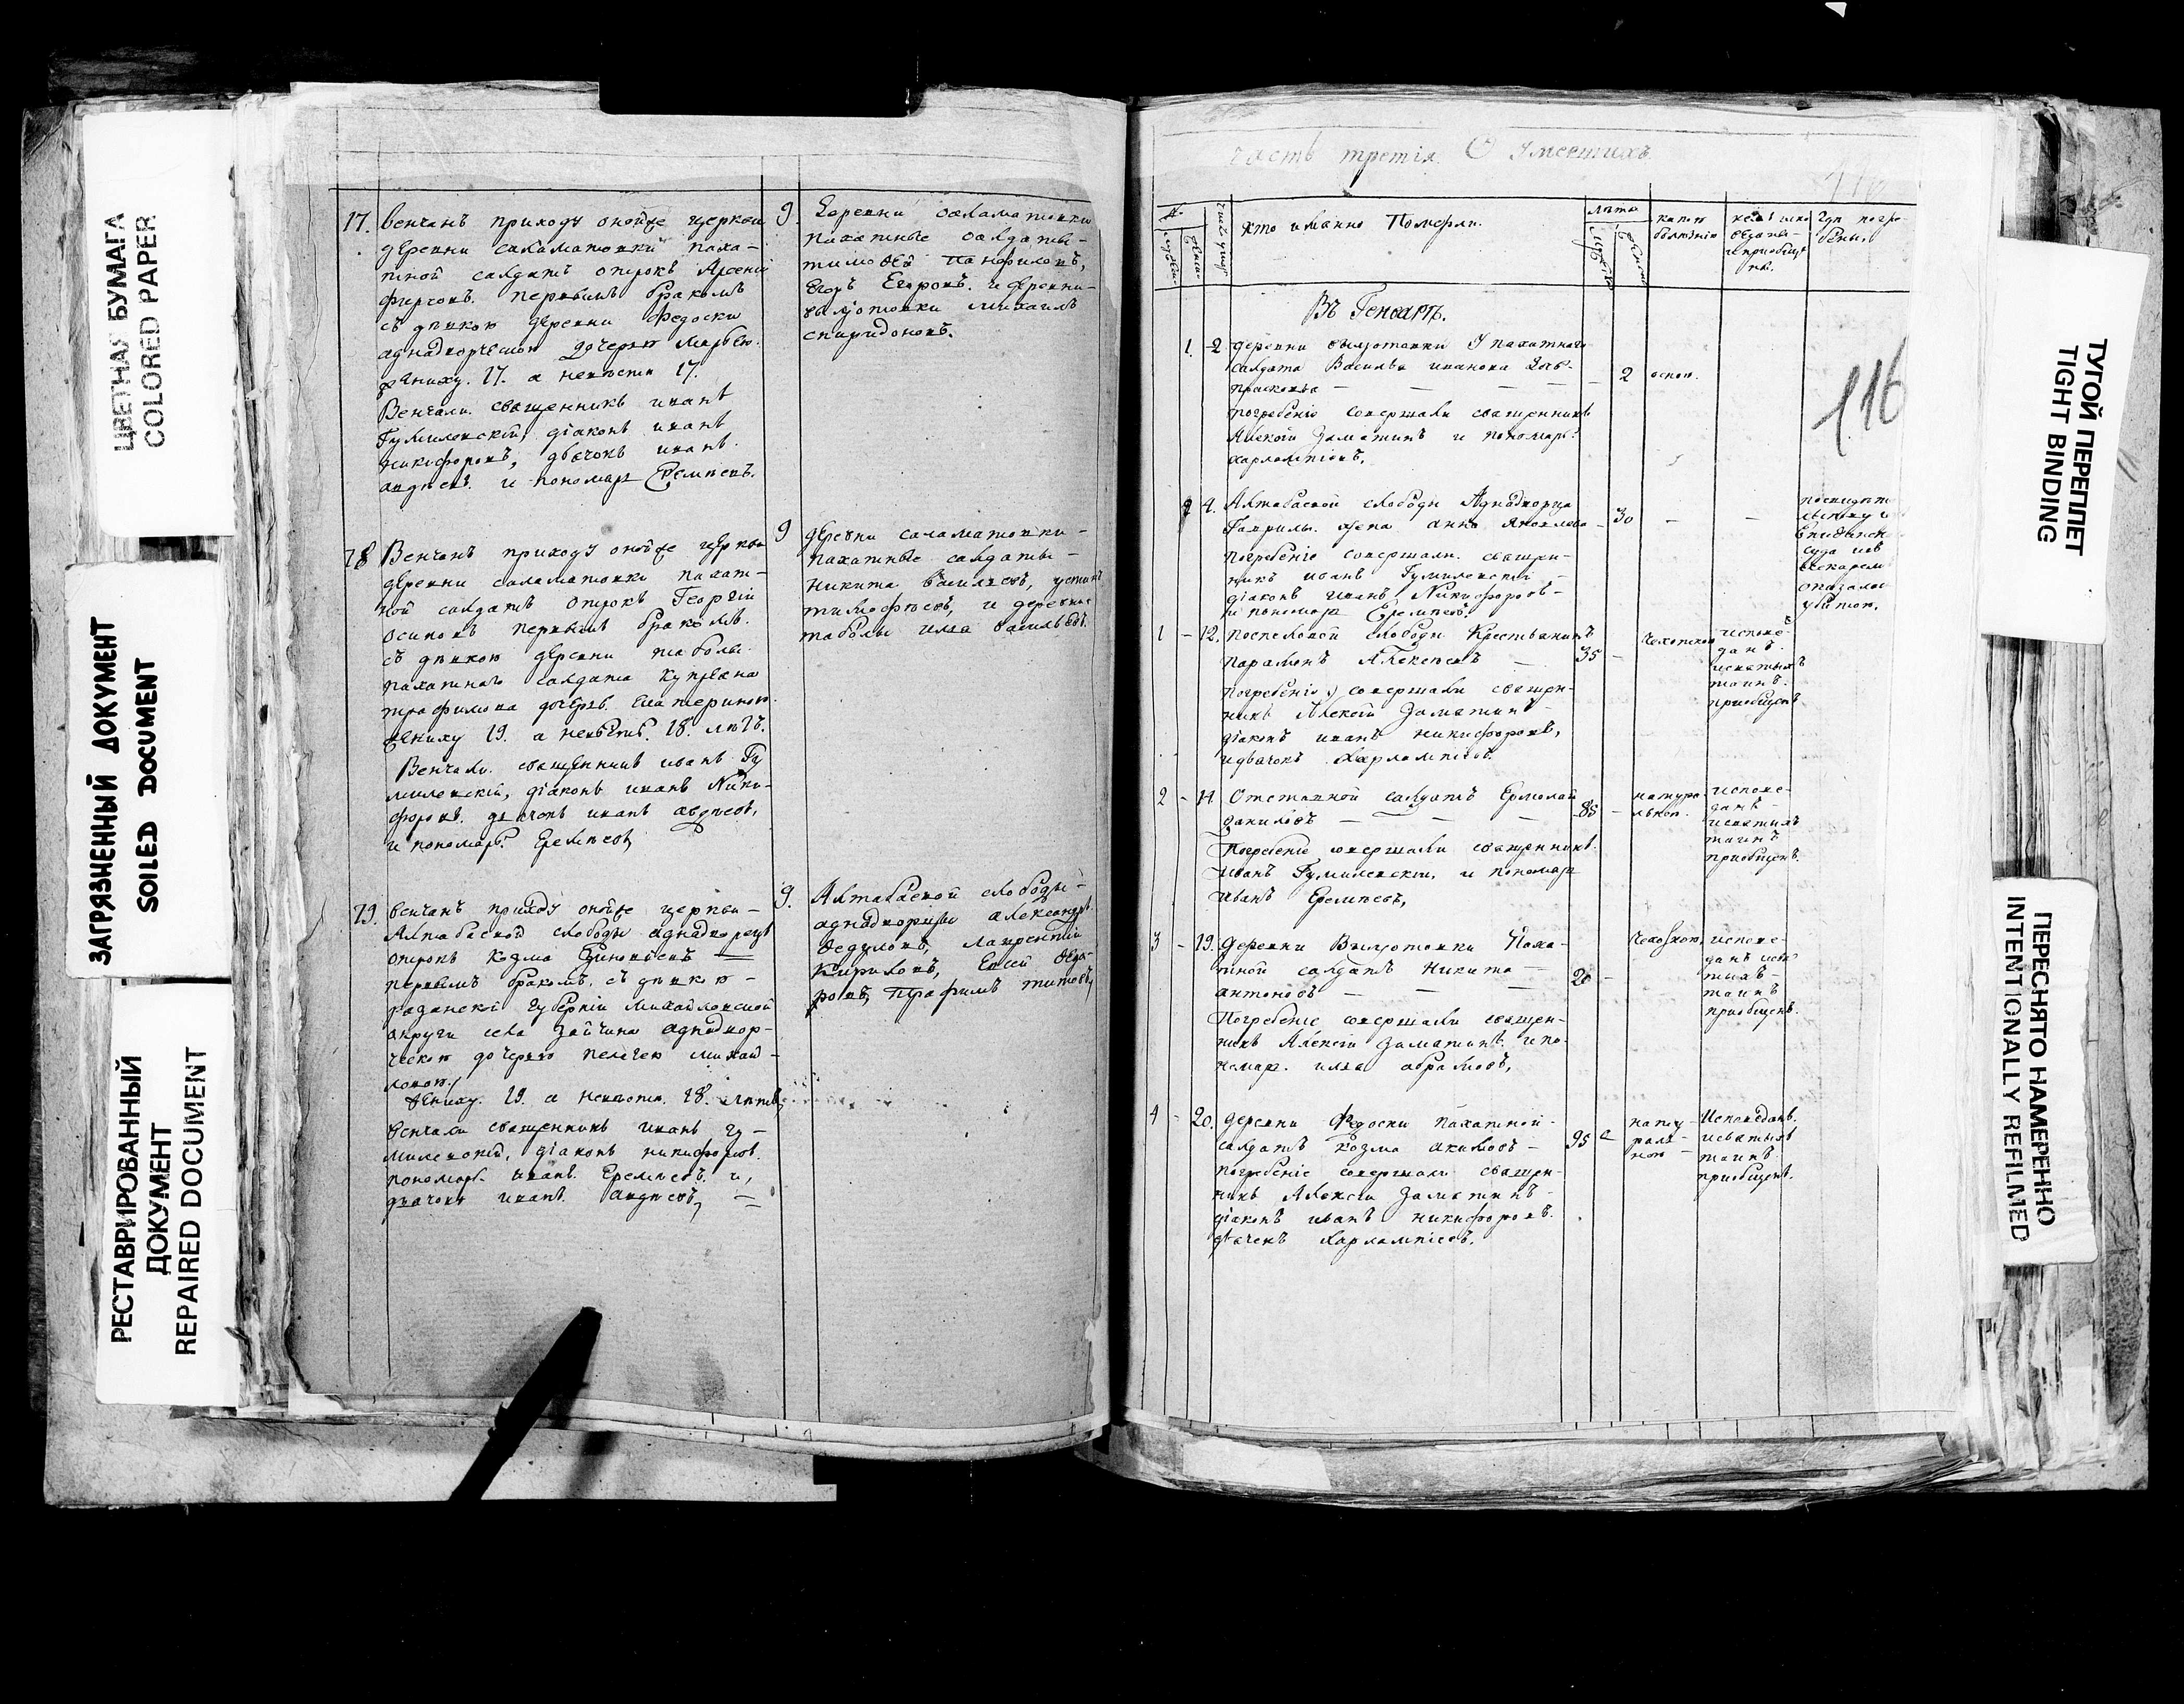 ЦВЕТНАЯ БУМАГА
COLORED PAPER
ЗАГРЯЗНЕННЫЙ ДОКУМЕНТ
SOILED DOCUMENT
РЕСТАВРИРОВАННЫЙ
ДОКУМЕНТ
REPAIRED DOCUMENT
17. Венчанъ приходу онойже церкви
деревни саламатовки паха-
тной салдатъ отрокъ Арсеній
первымъ бракомъ
съ девкою деревни Федоски
аднадворческою дочерью Марьею.
жениху. 17. а невесте 17.
Венчали. священникъ иванъ
Гумилевскій, діаконъ иванъ
никифоровъ, дьячокъ иванъ
авдеевъ. и пономарь Еремеевъ.
9. Деревни саламатовки
пахатные салдаты-
тимофей панфиловъ,
Егоръ Егоровъ. и деревни-
михаилъ
спиридоновъ.
18 Венчанъ приходу онойже церкви
деревни саламатовки пахат-
ной салдатъ отрокъ Георгій
осиповъ первымъ бракомъ.
съ девкою деревни таболы
пахатнаго салдата купреяна
трафимова дочерью. Екатериною.
жениху 19. а невесте. 18. летъ.
Венчали. священникъ иванъ Гу
милевскій, діаконъ иванъ Ники-
форовъ. дьячокъ иванъ авдеевъ,
и пономарь Еремеевъ,
9 деревни саламатовки-
пахатные салдаты-
никита васильевъ, устинъ
тимофеевъ, и деревни
таболы илья васильевъ.
19. венчанъ приходу онойже церкви-
Алтабаевой слободы аднадворецъ
отрокъ Козма Зиновьевъ
первымъ бракомъ, съ девкою-
резанской губерніи михайловской
округи села зайчина аднадвор-
ческою дочерью пелагеею михай-
ловою.
жениху. 19. а невесте. 18. летъ,
венчали священникъ иванъ гу-
милевскій, діаконъ никифоровъ.
пономарь иванъ. Еремеевъ. и,
дьячокъ иванъ. авдеевъ,
9. Алтабаевой слободы-
аднадворцы александръ
федуловъ, лаврентій
Кириловъ, Евсей федо-
ровъ, трафимъ титовъ,
часть третія. О умершихъ.
116
кто имянно Померли.
лета
какою
болезнію
где погре-
бены.
Въ Генваре.
1. 2 деревни у пахатнаго
салдата Василья иванова дочь
прасковья 2 оспою.
погребеніе совершали священникъ
Алексей Заматинъ и пономарь
харлампіевъ,
2 4. Алтабаевой слободы Аднадворца
Гаврилы. жена анна яковлева 30
погребеніе совершали. священ-
никъ иванъ Гумилевскій
діаконъ иванъ Никифоровъ-
и пономарь Еремеевъ.
суда
оказалась
убитою.
1 12. поспеловой слободы Крестьянинъ
парамонъ Алексеевъ 35 Чахоткою
погребеніе совершали священ-
никъ Алексей Заматинъ
діаконъ иванъ никифоровъ,
и дьячокъ Харлампіевъ.
испове-
данъ.
исвятыхъ
таинъ.
приобщенъ
2 14 Отставной салдатъ Ермолай
даниловъ 85 натура-
льною.
Погребеніе совершали священникъ.
иванъ Гумилевскій. и пономарь
иванъ Еремеевъ,
испове-
данъ-
исвятыхъ
таинъ
приобщенъ.
3 19. Деревни Паха-
тной салдатъ Никита
антоновъ 20 Чахоткою,
Погребеніе совершали священ-
никъ Алексей Заматинъ. и по-
номарь. илья абрамовъ,
испове-
данъ
таинъ
приобщенъ.
4 20. деревни Федоски пахатной-
салдатъ Козма акимовъ 95 нату-
раль-
ною
погребеніе совершали священ-
никъ Алексей Заматинъ
діаконъ иванъ никифоровъ.
дьячекъ Харлампіевъ.
Исповеданъ.
исвятыхъ
таинъ
приобщенъ.
116
ТУГОЙ ПЕРЕПЛЕТ
TIGHT BINDING
ПЕРЕСНЯТО НАМЕРЕННО
INTENTIONALLY REFILMED